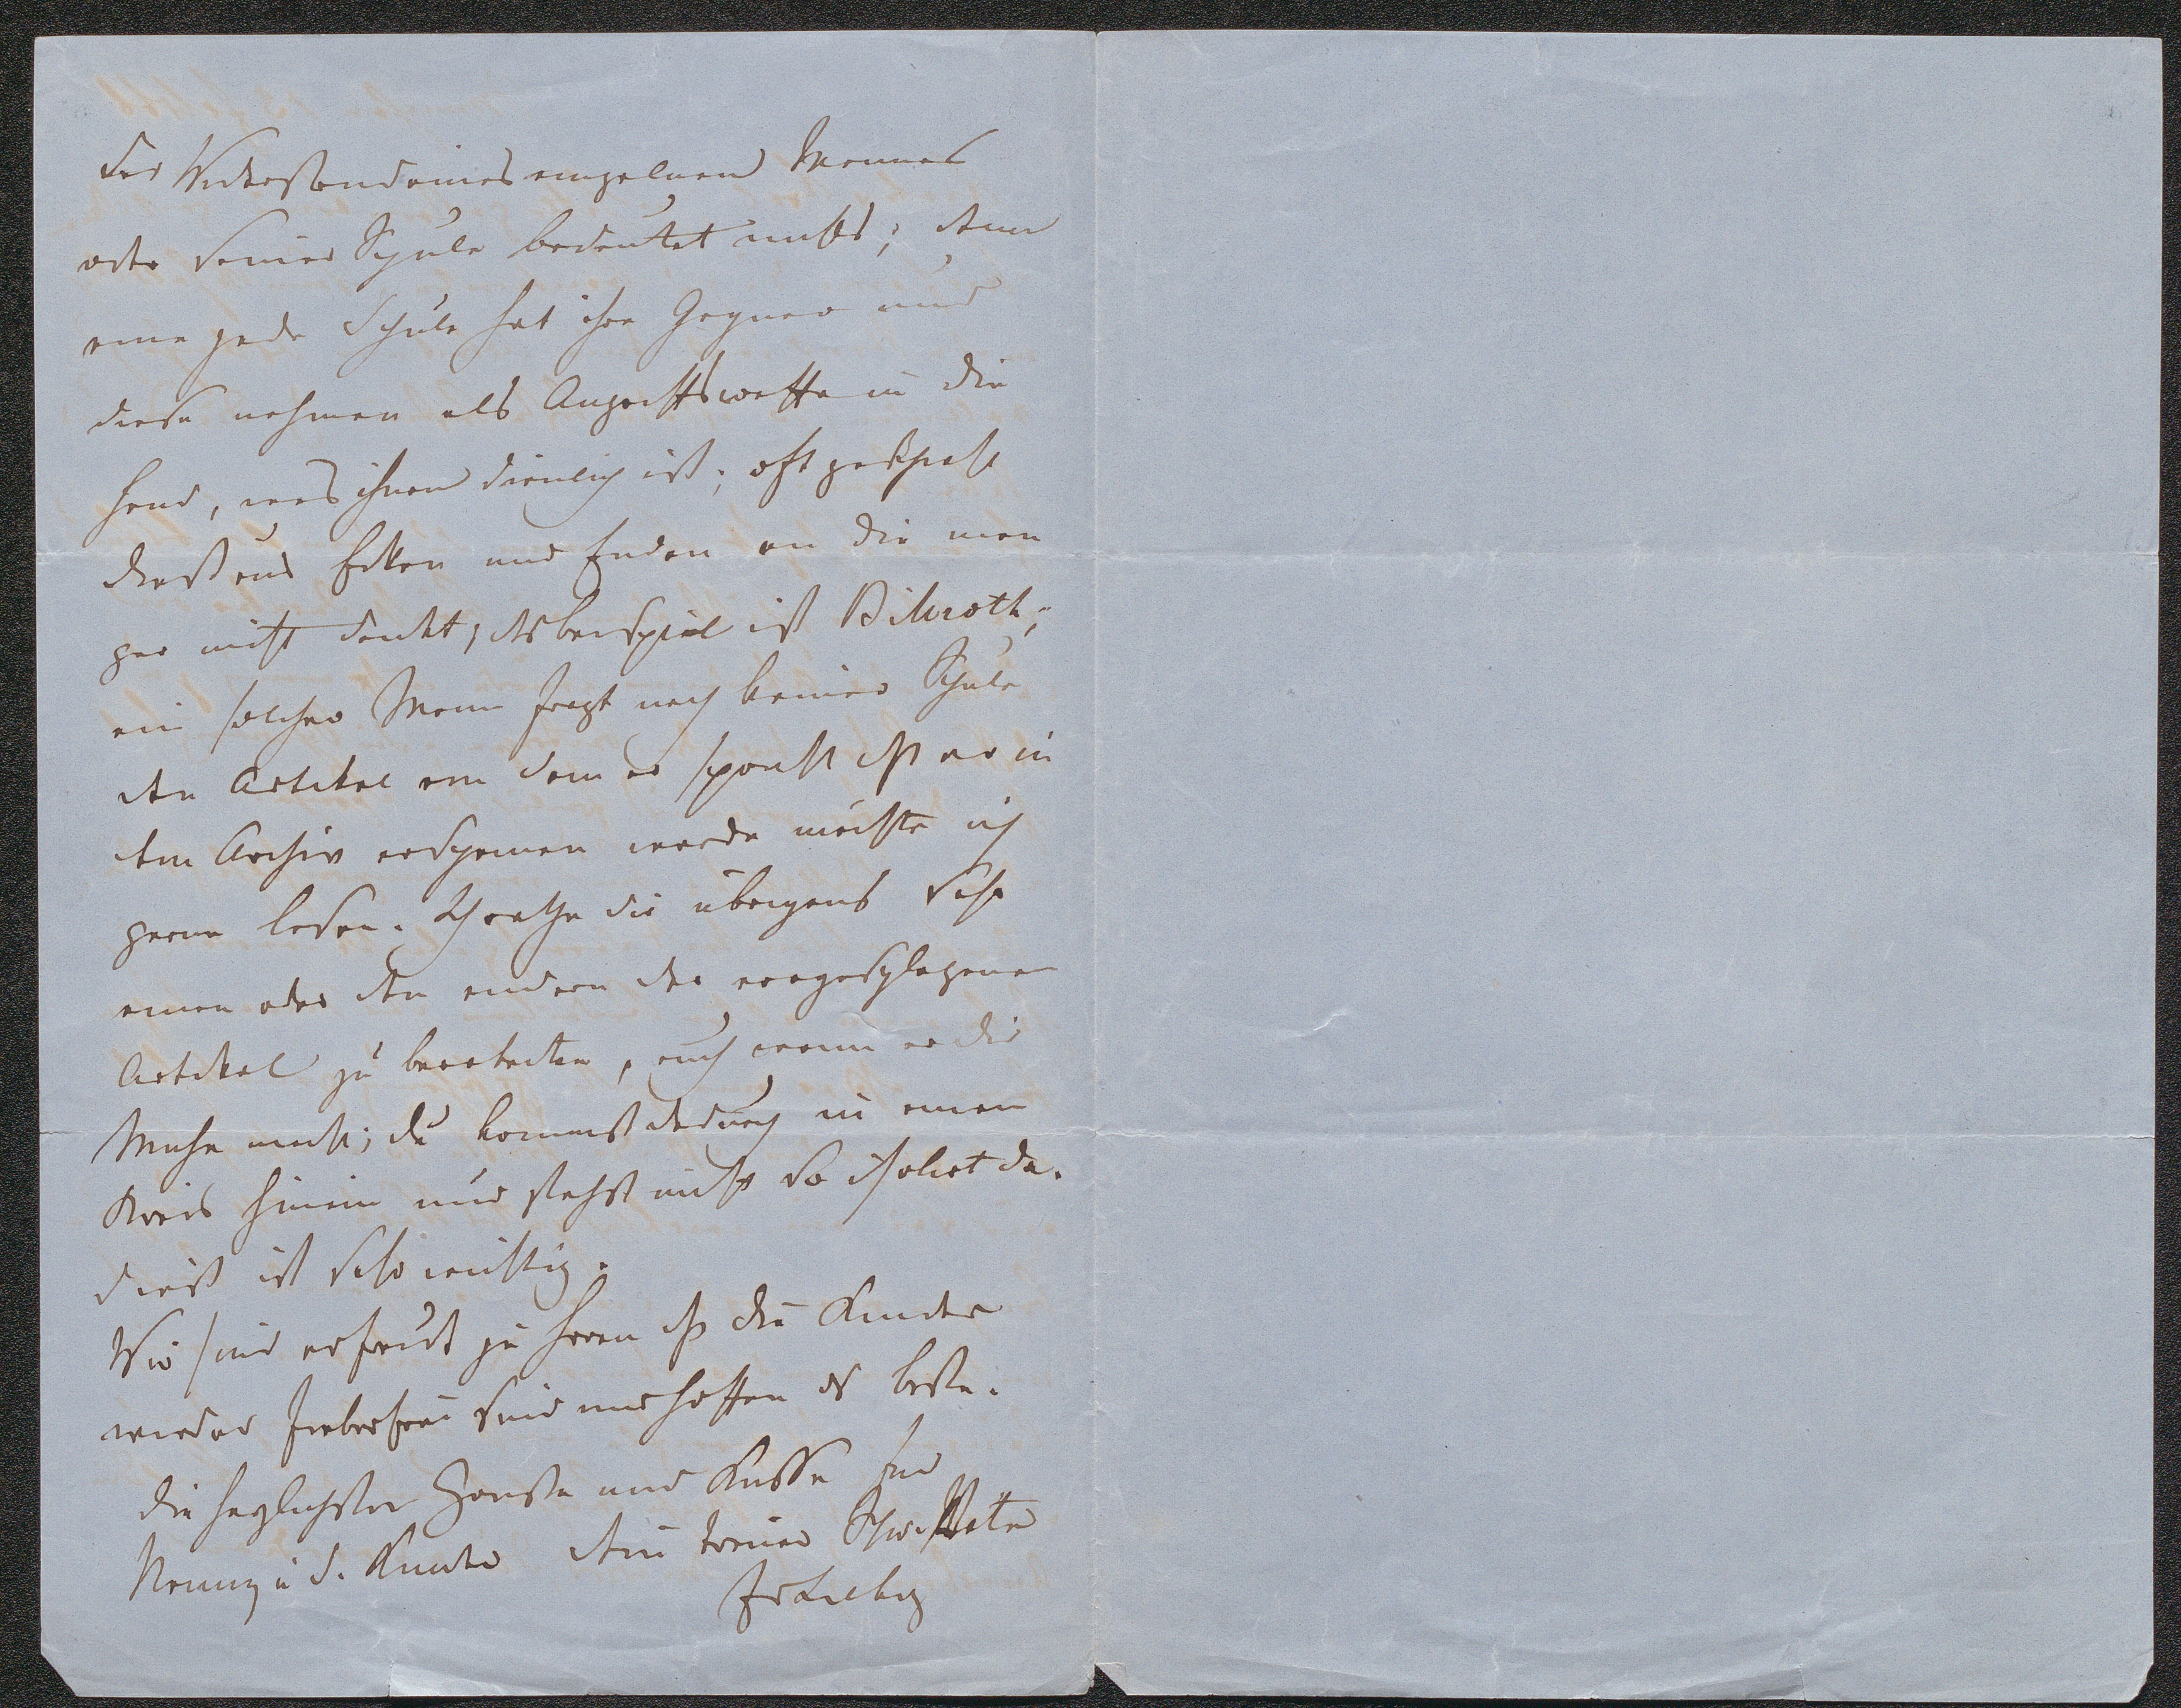 Der Widerstand eines einzelnen Mannes
oder seiner Schule bedeutet nichts; denn
eine jede Schule hat ihre Gegner und
diese nehmen als Angriffswaffe in die
Hand, was ihnen dienlich ist; oft geschieht
dieß aus Ecken und Enden an die man
gar nicht denkt; das beispiel ist Billroth;
ein solcher Mann fragt nach keiner Schule
den Artikel von dem er spricht daß er in
dem Archiv erscheinen werde möchte ich
gerne lesen. Ich rathe dir übrigens sehr
einen oder den andern der vorgeschlagenen
Artikel zu bearbeiten, auch wenn er dir
Mühe macht; du kommst dadurch in einen
Kreis hinein und stehst nicht so isolirt da.
dieß ist sehr wichtig.
Wir sind erfreut zu hören daß die Kinder
wieder fieberfrei sind und hoffen das beste.
die herzlichsten Grüße und Küsse für
Nanny u d. Kinder dein treuer Schw Vater
J v Liebig